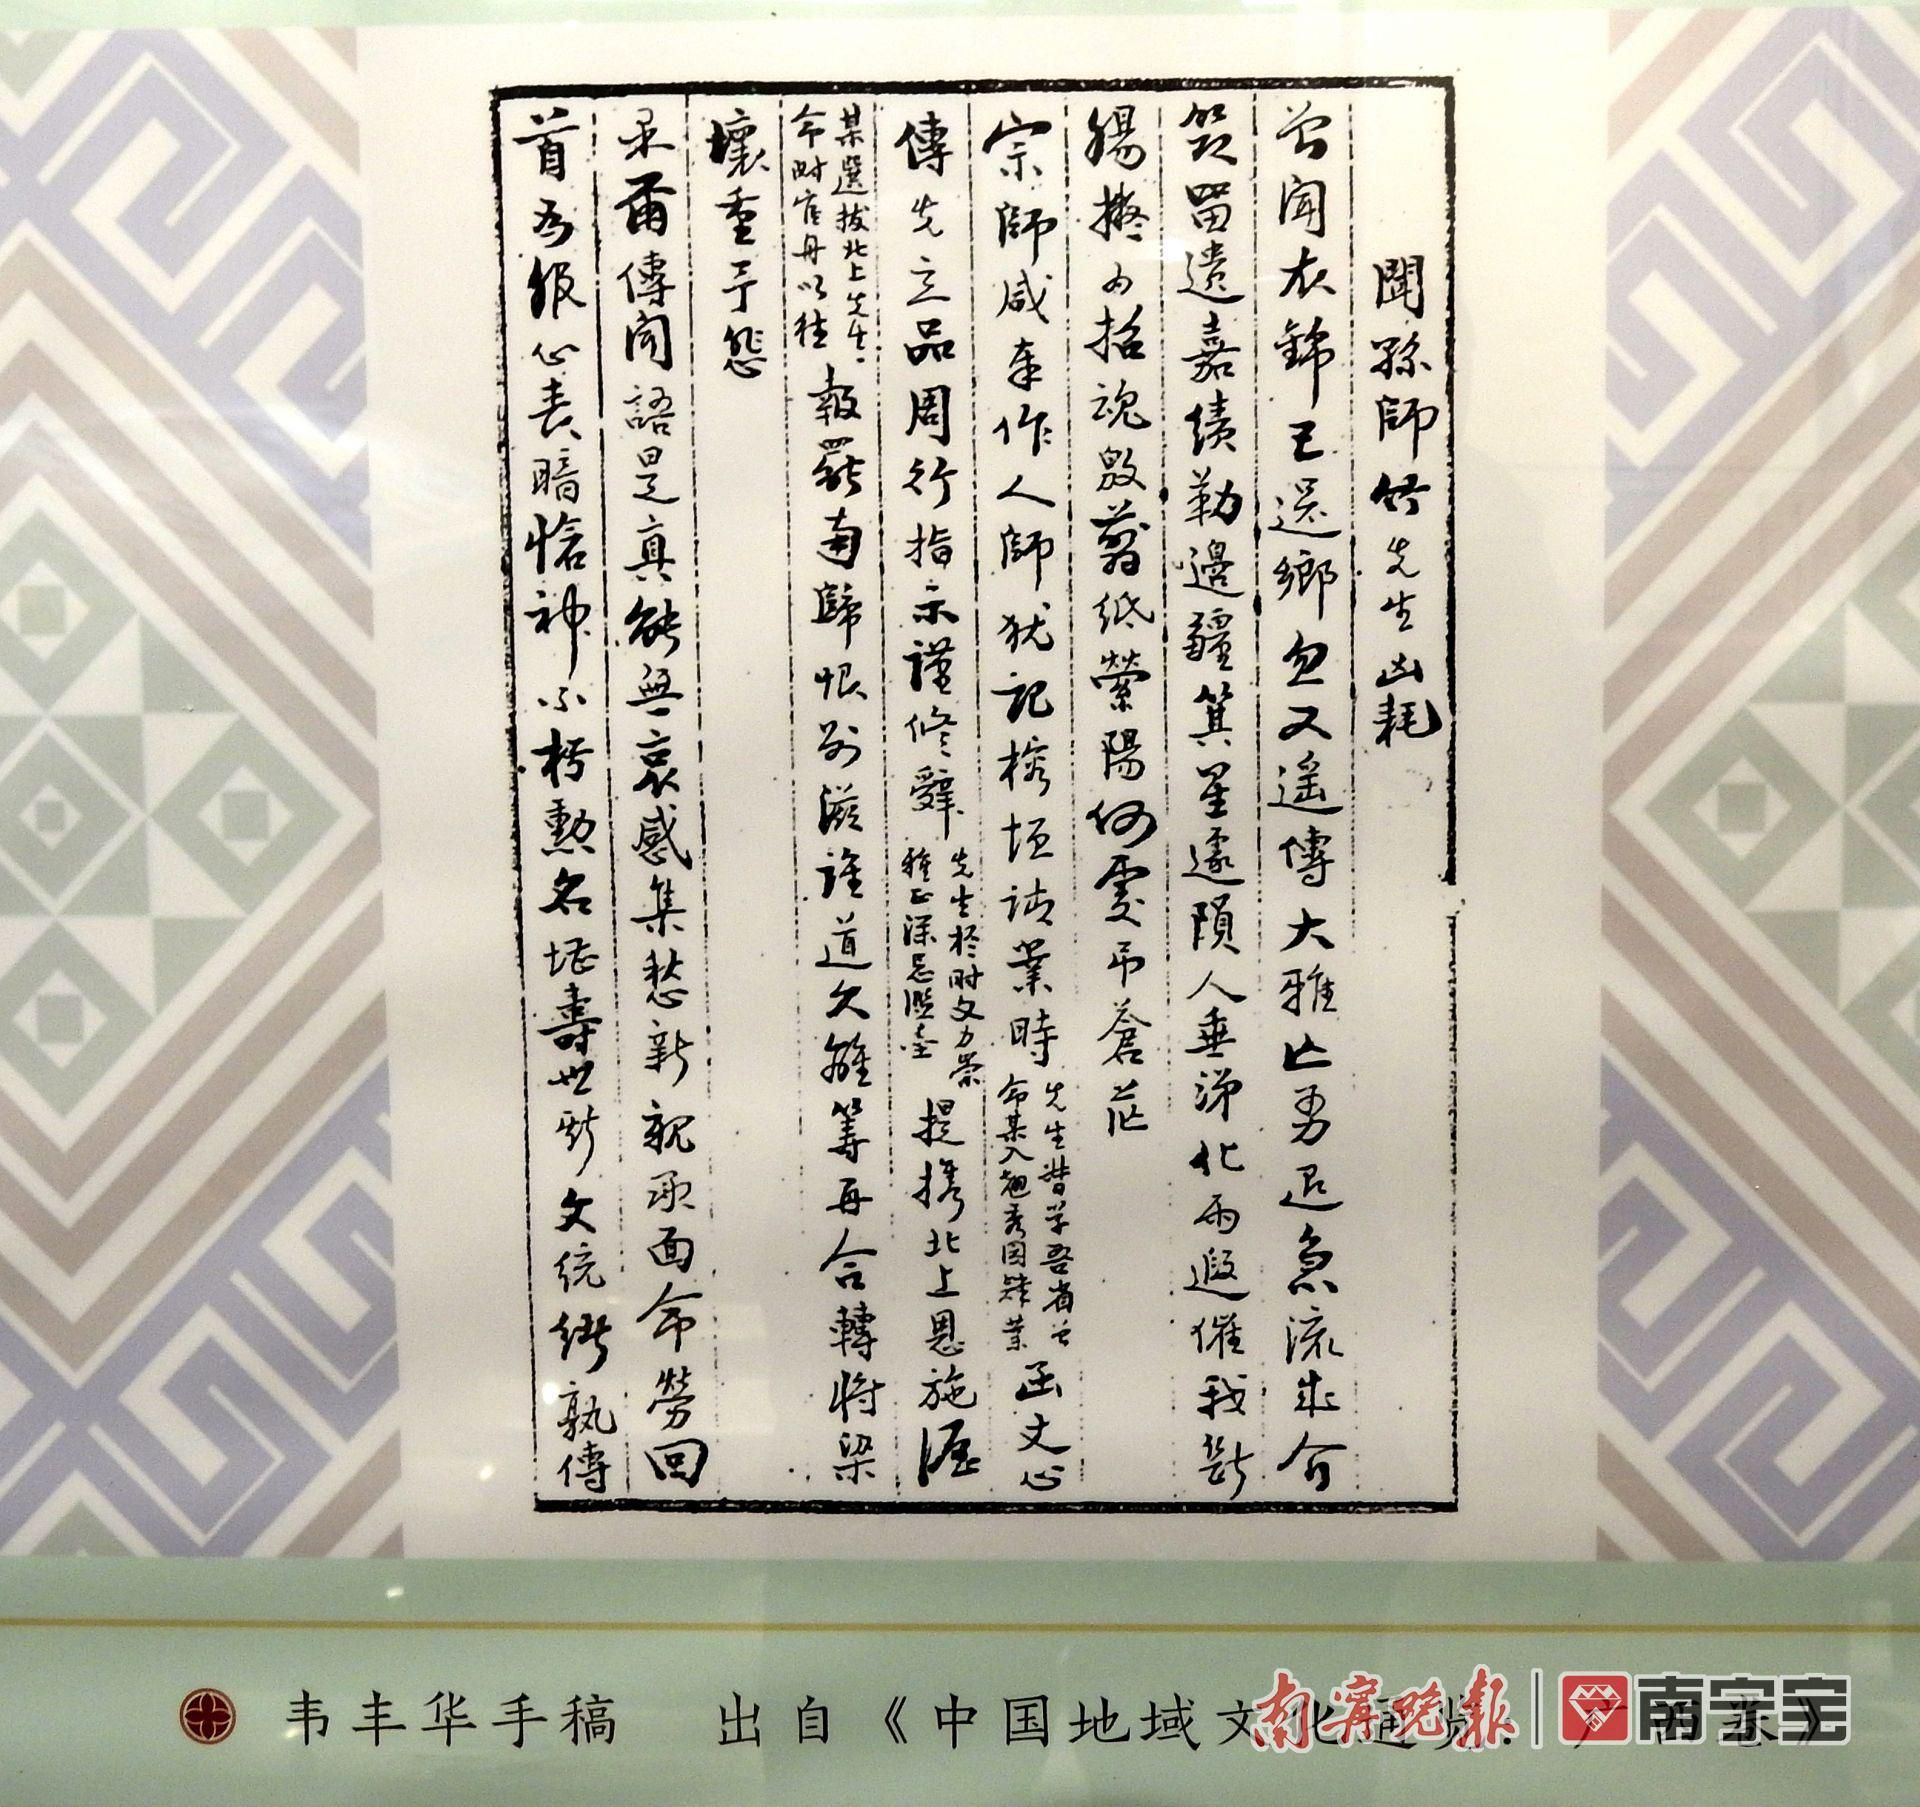 聞孫師竹先生凶耗
曾聞衣錦已還鄉忽又遙傳大雅亡勇退急流身介
留遺嘉績勒邊疆箕星遽隕人垂涕化雨遐催我斷
腸擬為招魂敬剪紙縈陽何處弔蒼茫
宗師咸奉作人師猶記榕垣請業時先生督學吾省曾命某入秀因肄業函丈心
傳先立品周行指示謹修辭先生於時文力崇雅正深忌濫套提携北上恩施渥
某選拔北上先生命附官舟以往報罷南歸恨別滋誰道久離籌再合轉將梁
壞重予悲
爾傳聞語是真能無哀感集愁新親承面命勞回
首為服心喪暗愴神不朽勳名堪壽世斯文統緒孰傳
韦丰华手稿 出自《中国地域文化通览·广西卷》
南宁晚报 南宁宝